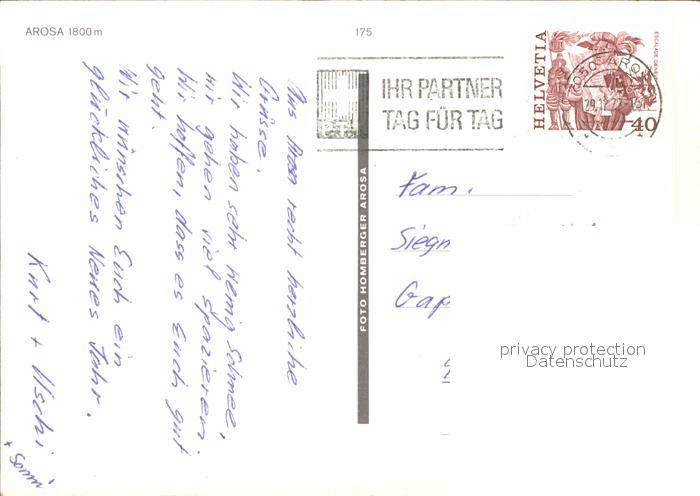 AROSA 1800 m
175
IHR PARTNER
TAG FÜR TAG
HELVETIA
ESCALADE GENÈVE
40
7050 AROSA
29.12.77
Aus Arosa recht herzliche
Grüsse.
Wir haben sehr wenig Schnee,
wir gehen viel spazieren.
Wir hoffen, dass es Euch gut
geht.
Wir wünschen Euch ein
glückliches Neues Jahr.
Kurt + Uschi
FOTO HOMBERGER AROSA
Fam.
Siegn
Gap
privacy protection
Datenschutz